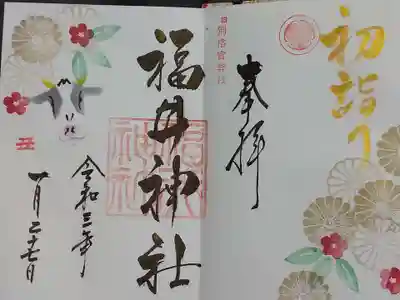 初詣り
旧別格官幣社
奉拝
福井神社
令和三年
一月二十七日
丑